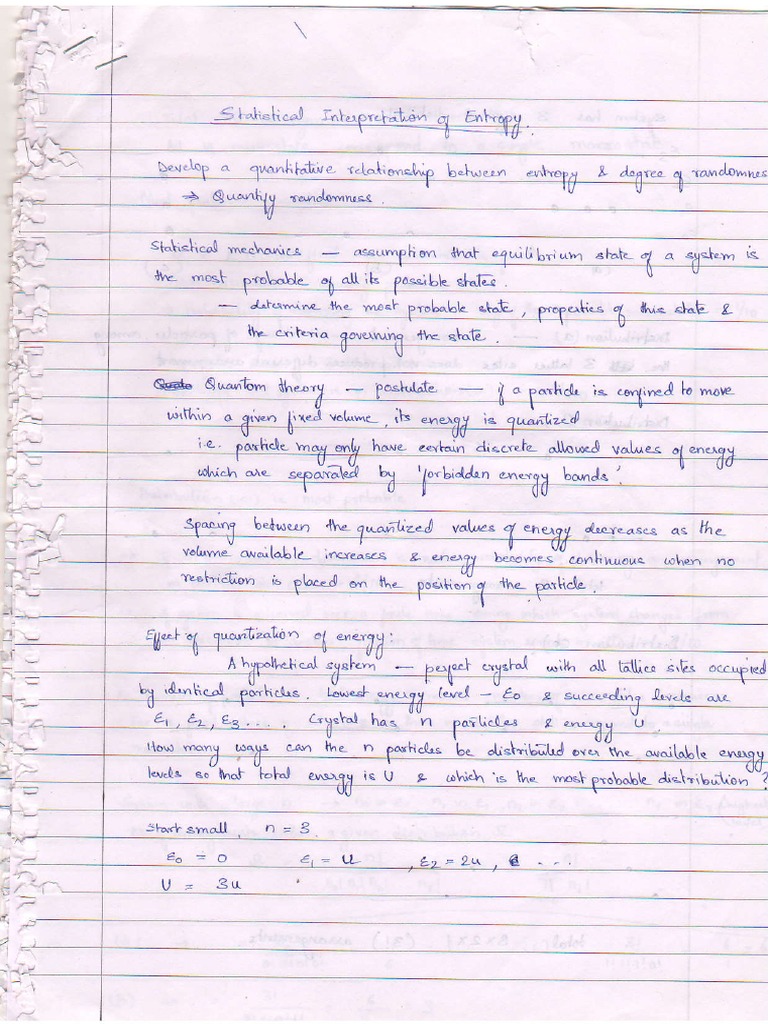 Statistical Interpretation of Entropy.
Develop a quantitative relationship between entropy & degree of randomnes
⇒ Quantify randomness.
Statistical mechanics — assumption that equilibrium state of a system is
the most probable of all its possible states.
— determine the most probable state, properties of this state &
the criteria governing the state.
Quantom theory — postulate — if a particle is confined to move
within a given fixed volume, its energy is quantized
i.e. particle may only have certain discrete allowed values of energy
which are separated by 'forbidden energy bands'.
Spacing between the quantized values of energy decreases as the
volume available increases & energy becomes continuous when no
restriction is placed on the position of the particle.
Effect of quantization of energy:
A hypothetical system — perfect crystal with all lattice sites occupied
by identical particles. Lowest energy level – ε0 & succeeding levels are
ε1, ε2, ε3 .... Crystal has n particles & energy U.
How many ways can the n particles be distributed over the available energy
levels so that total energy is U & which is the most probable distribution?
Start small, n = 3.
ε0 = 0 ε1 = u , ε2 = 2u, ...
U = 3u